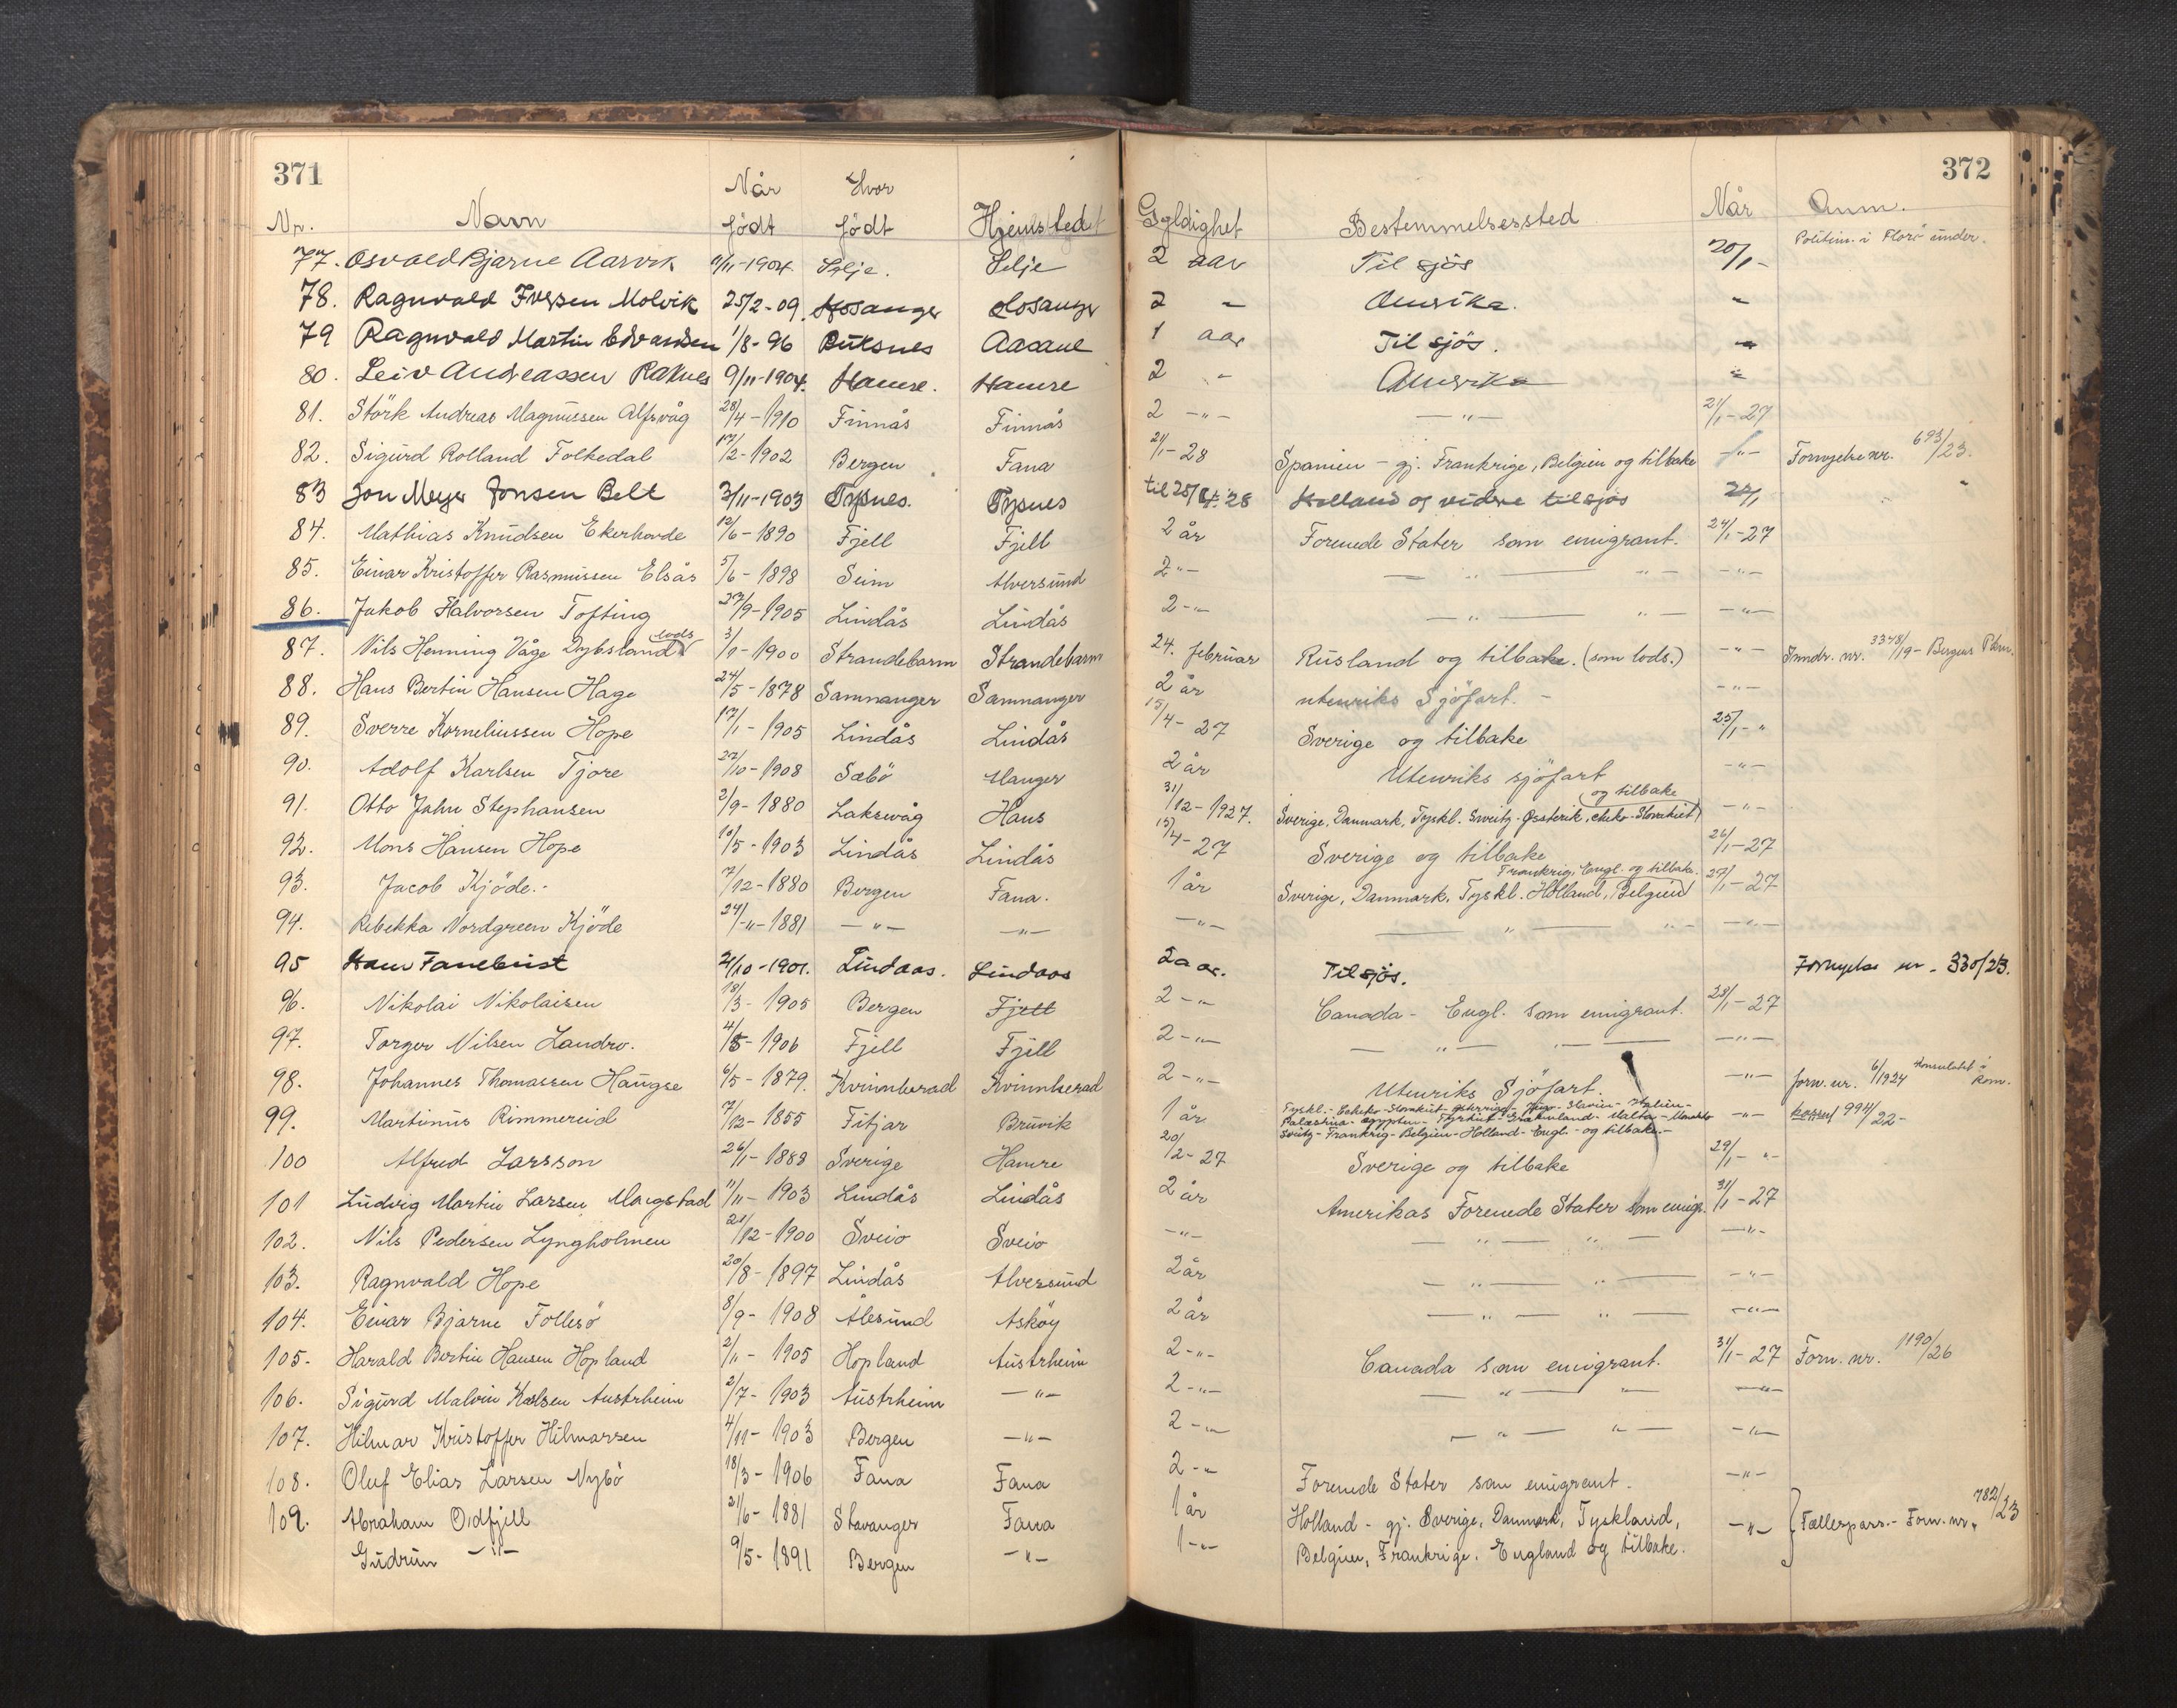 371
372
Nr. Navn Når født Hvor født Hjemsted Gyldighet Bestemmelsessted Når Anm.
77. Osvald Bjarne Aarvik 11/11-1904. Selje. Selje 2 aar Til sjös 20/1- Politim. i Florö under.
78. Ragnvald Iversen Molvik 25/2-09. Hosanger Hosanger 2 - Amerika. "
79 Ragnvald Martin Edvardsen 1/8-96 Buksnes Aasane 1 aar Til sjös. "
80. Leiv Andreassen Raknes 9/11-1904. Hamre. Hamre 2 - Amerika "
81. Störk Andreas Magnussen Alfsvåg 28/4-1910 Finnås Finnås 2 -"- -"- 21/1-27
82. Sigurd Rolland Folkedal 17/2-1902 Bergen Fana 21/1-28 Spanien - gj. Frankrige, Belgien og tilbake -"- Fornyelse nr. 693/23.
83 Jon Meyer Jonsen Belt 3/11-1903 Tysnes. Tysnes til 28 Holland og vidre til sjös 22/1
84. Mathias Knudsen Ekerhovde 12/6-1890 Fjell Fjell 2 år Forenede Stater som emigrant. 24/1-27
85. Einar Kristoffer Rasmussen Elsås 5/6-1898 Seim Alversund 2 -"- -"- "- -"-
86. Jakob Halvorsen Tofting 27/9-1905 Lindås Lindås 2 -"- -"- "- -"-
87. Nils Henning Våge Dybsland lods 3/1-1900 Strandebarm Strandebarm 24. februar Rusland og tilbake. (som lods.) -"- Inndr. nr. 3378/19- Bergens Pkm.
88. Hans Bertin Hansen Hage 24/5-1878 Samnanger Samnanger 2 år utenriks Sjöfart. - -"-
89. Sverre Korneliussen Hope 17/1-1905 Lindås Lindås 15/4-27 Sverige og tilbake 25/1-"
90. Adolf Karlsen Tjore 27/10-1908 Sæbö Manger 2 år Utenriks sjöfart -"-
91. Otto Jahn Stephansen 2/9-1880 Laksevåg Haus 31/12-1927. Sverige, Danmark, Tyskl. Sveitz-Østerik, cheko-Slovakiet og tilbake -"-
92. Mons Hansen Hope 10/5-1903 Lindås Lindås 15/4-27 Sverige og tilbake 26/1-27
93. Jacob Kjöde.- 7/12-1880 Bergen Fana. 1 år Sverige, Danmark, Tyskl. Holland, Belgien Frankrig, Engl. og tilbake. 27/1-27
94. Rebekka Nordgreen Kjöde 24/-"-1881 -"- -"- -"- -"- "- -"-
95 Hans Fanebust 21/10-1901. Lindaas. Lindaas 2 aar. Til sjös. Fornyelse nr. 330/23.
96. Nikolai Nikolaisen 18/3-1905 Bergen Fjell 2 -"- Canada - Engl. som emigrant. 28/1-27
97. Torger Nilsen Landro. 4/5-1906 Fjell Fjell 2 -"- -"- "- -"-
98. Johannes Thomassen Haugse 6/5-1879. Kvinnherad Kvinnherad 2 -"- Utenriks Sjöfart. -"- forn. nr. 6/1924 Konsulatet i Rom.
99. Martinus Rimmereid 7/12-1855 Fitjar Bruvik 1 år Tyskl.- Tcheko-Slovakiet - Østerrige - Jugo-Slavien - Italien - -"- 994/22-
Palæstina - Egypten - Tyrkiet - Grækenland - Malta - Monako
Sveitz - Frankrig - Belgien - Holland - Engl. - og tilbake.-
100 Alfred Larsson 26/1-1888 Sverige Hamre 20/2-27 Sverige og tilbake 29/1-"-
101 Ludvig Martin Larsen Mangstad 11/11-1903 Lindås Lindås 2 år Amerikas Forenede Stater som emigr. 31/1-27
102. Nils Pedersen Lyngholmen 21/12-1900 Sveio Sveio -"- -"- "- -"-
103. Ragnvald Hope 20/8-1897 Lindås Alversund 2 år -"- "- -"-
104. Einar Bjarne Follesö 8/9-1908 Ålesund Asköy 2 år -"- "- -"-
105. Harald Bertin Hansen Hopland 2/11-1905 Hopland Austrheim 2 -"- Canada som emigrant. 31/1-27 Forn. nr. 1190/26
106. Sigurd Malvin Karlsen Austrheim 2/7-1903 Austrheim -"- 2 -"- -"- "- -"-
107. Hilmar Kristoffer Hilmarsen 4/11-1903 Bergen -"- 2 -"- -"- "- -"-
108. Oluf Elias Larsen Nybö 18/3-1906 Fana Fana 2 -"- Forenede Stater som emigrant. -"-
109. Abraham Odfjell 21/6-1881 Stavanger Fana 1 år Holland - gj. Sverige, Danmark, Tyskland, -"- Fællespass.- Forn. nr. 782/23
Gudrun -"- 9/5-1891 Bergen -"- 1 -"- Belgien, Frankrige. England og tilbake.